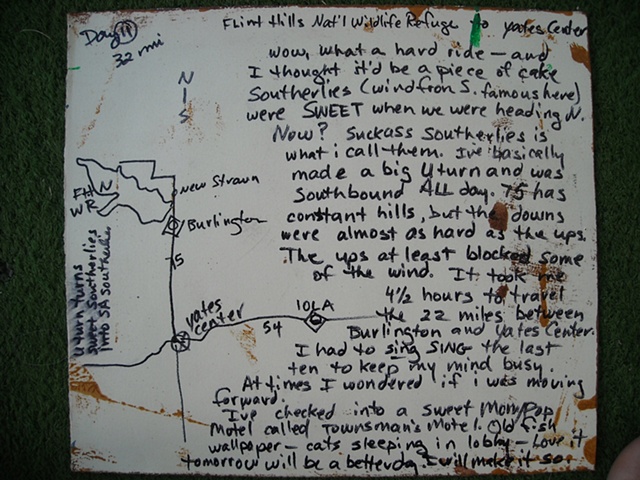 Day 11
32 mi
Flint Hills Nat'l Wildlife Refuge to Yates Center
wow, what a hard ride — and
I thought it'd be a piece of cake
Southerlies (wind from S. famous here)
were SWEET when we were heading N.
Now? Suckass Southerlies is
what i call them. I've basically
made a big U turn and was
Southbound ALL day. 75 has
constant hills, but the downs
were almost as hard as the ups.
The ups at least blocked some
of the wind. It took me
4½ hours to travel
the 22 miles between
Burlington and Yates Center.
I had to sing SING the last
ten to keep my mind busy.
At times I wondered if i was moving
forward.
I've checked into a sweet Mom/Pop
Motel called Townsman's Motel. Old fish
wallpaper — cats sleeping in lobby — Love it
tomorrow will be a better day. I will make it so
N
S
FH N
WR
New Strawn
Burlington
75
Yates
Center
54
IOLA
U turn turns
sweet Southerlies
into SA Southerlies